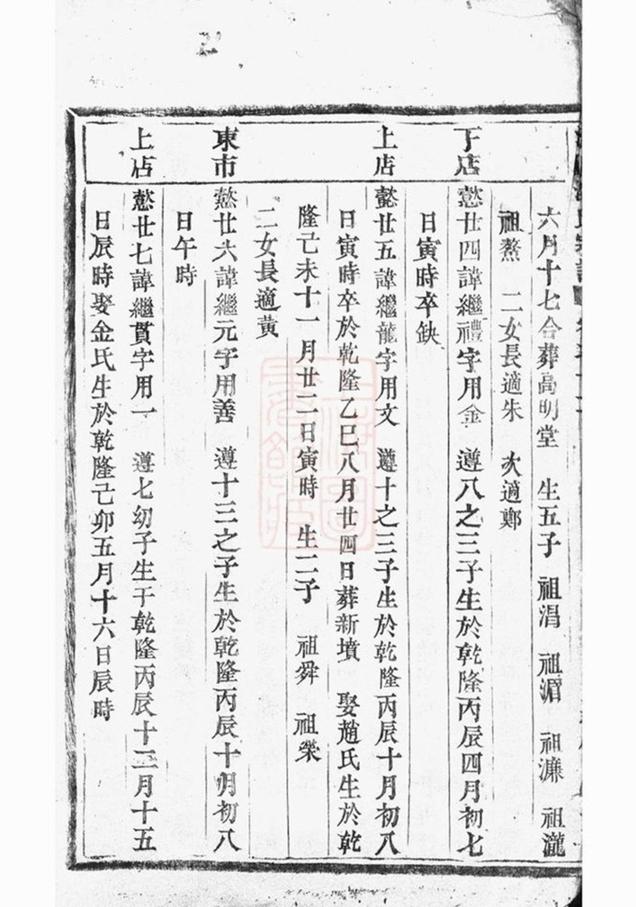 六月十七合葬高明堂 生五子 祖湄 祖濂 祖瀧
祖熬 二女長適朱 次適鄭
下店
愗廿四諱繼禮字用金 遵八之三子生於乾隆丙辰四月初七
日寅時卒缺
上店
愗廿五諱繼龍字用文 遵十之三子生於乾隆丙辰十月初八
日寅時卒於乾隆乙巳八月廿四日葬新墳 娶趙氏生於乾
隆己未十一月廿二日寅時 生二子 祖舜 祖榮
二女長適黃
東市
愗廿六諱繼元字用善 遵十三之子生於乾隆丙辰十月初八
日午時
上店
愗廿七諱繼貫字用一 遵七幼子生于乾隆丙辰十二月十五
日辰時娶金氏生於乾隆己卯五月十六日辰時